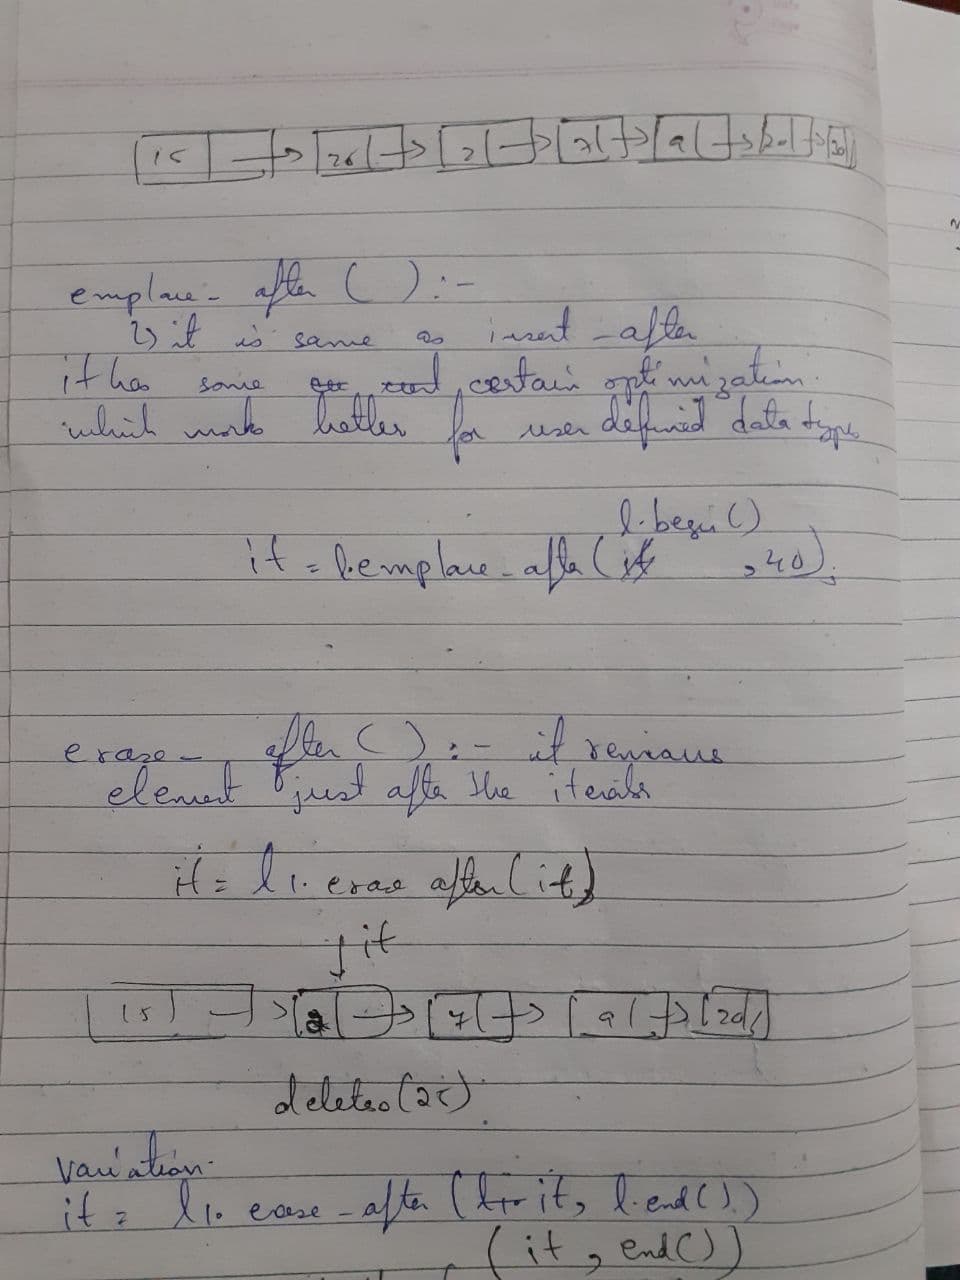 15 → 26 → 2 → 7 → 9 → 20 → 30
emplace - after ( ) :-
it is same as insert - after
it has some certain optimization.
which works better for user defined data type
l.begin()
it = l.emplace - after (it , 40);
erase - after ( ) :- it removes
element just after the iterator
it = l1. erase after (it)
↓ it
15 → 2 → 7 → 9 → 20
deletes
variation.
it = l1. erase - after ( it, l.end())
(it , end())